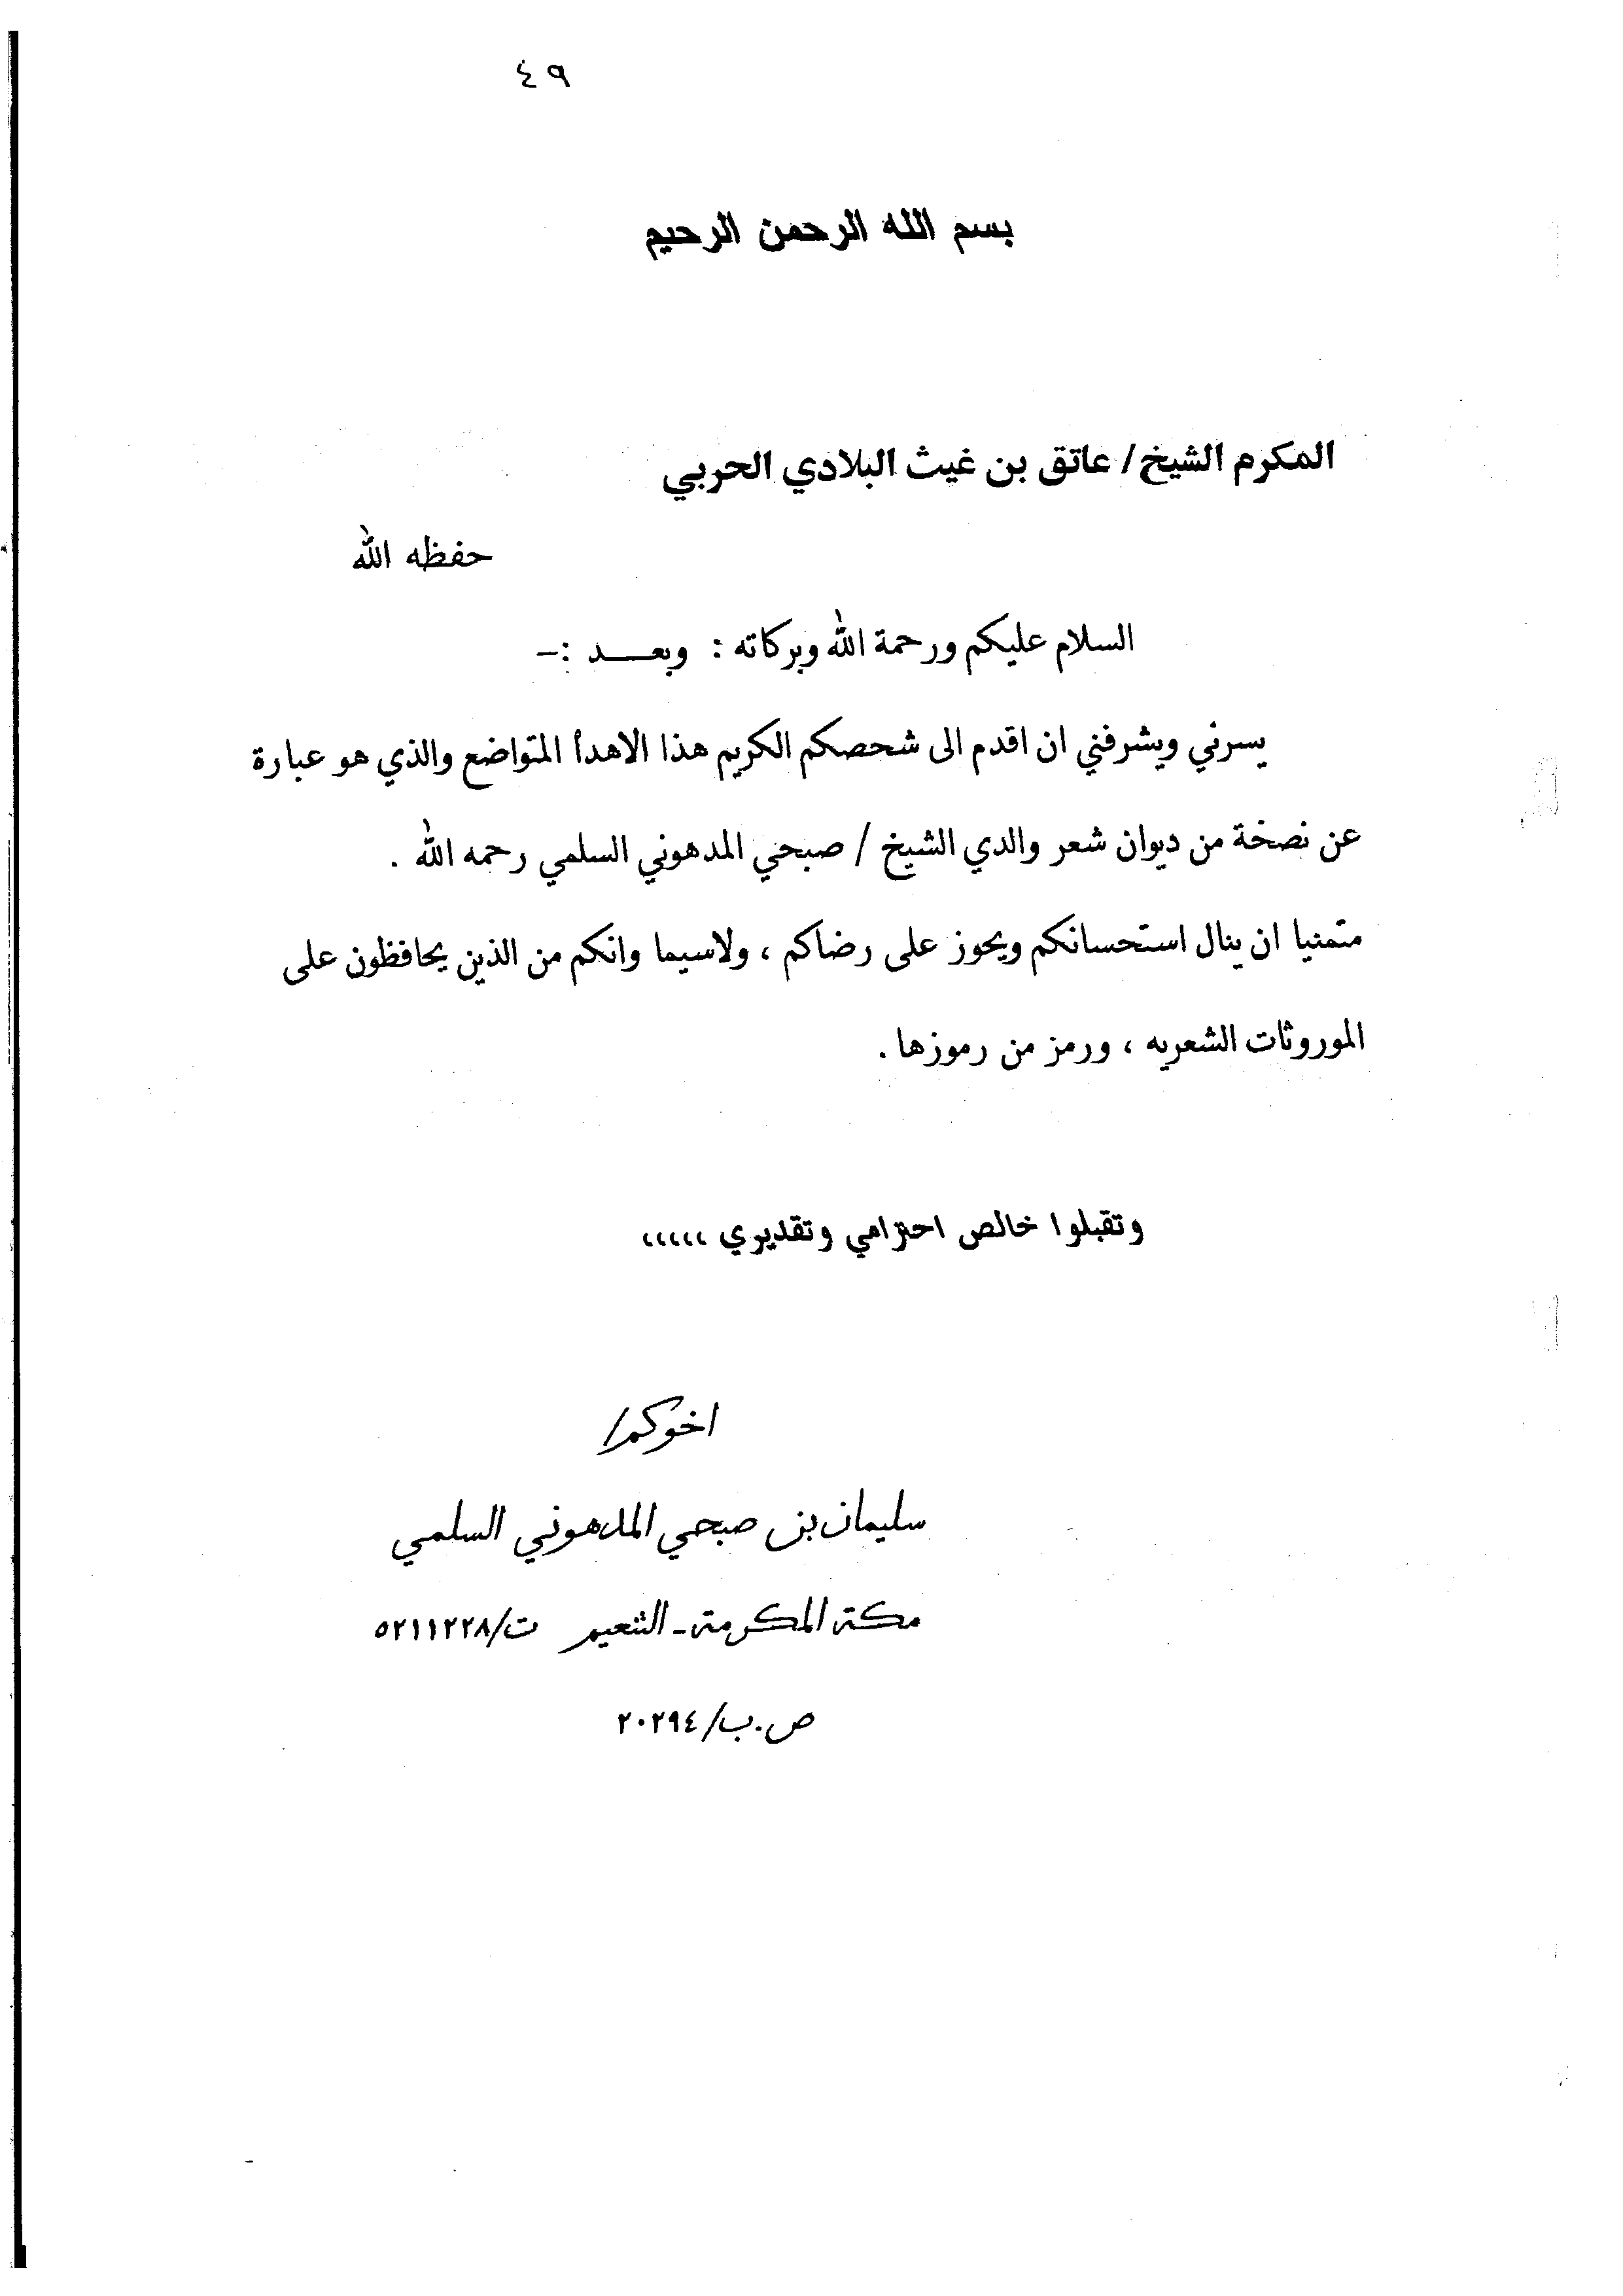 ٤٩
بسم الله الرحمن الرحيم
المكرم الشيخ/ عاتق بن غيث البلادي الحربي
حفظه الله
السلام عليكم ورحمة الله وبركاته : وبعـــد :-
يسرني ويشرفني ان اقدم الى شحصكم الكريم هذا الاهدأ المتواضع والذي هو عبارة
عن نصخة من ديوان شعر والدي الشيخ / صبحي المدهوني السلمي رحمه الله .
متمنيا ان ينال استحسانكم ويحوز على رضاكم ، ولاسيما وانكم من الذين يحافظون على
الموروثات الشعريه ، ورمز من رموزها .
وتقبلوا خالص احترامي وتقديري ،،،،،
اخوكم/
سليمان بن صبحي المدهوني السلمي
مكة المكرمة - التنعيم ت/٥٢١١٢٢٨
ص.ب/٢٠٢٩٤